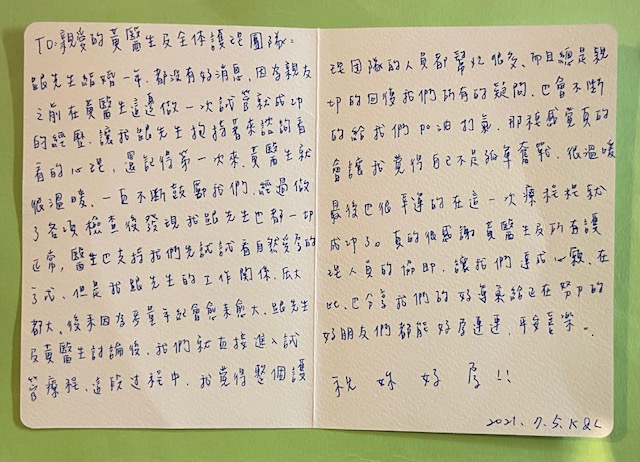 TO:親愛的黃醫生及全体護理團隊：
跟先生結婚一年，都沒有好消息，因為親友
之前在黃醫生這邊做一次試管就成功
的經歷，讓我跟先生抱持著來諮詢看
看的心理，還記得第一次來，黃醫生就
很溫暖，一直不斷鼓勵我們，經過做
了各項檢查後發現我跟先生也都一切
正常，醫生也支持我們先試試看自然受孕的
方式，但是我跟先生的工作關係，压力
都大，後來因為考量年紀會愈來愈大，跟先生
及黃醫生討論後，我們就直接進入試
管療程，這段过程中，我覺得整個護
理团隊的人員都幫忙很多，而且總是親
切的回復我們所有的疑問，也會不斷
的給我們加油打氣，那種感覺真的
會讓我覺得自己不是孤單奮戰，很溫暖
最後也很幸運的在這一次療程裡就
成功了。真的很感謝黃醫生及所有護
理人員的協助，讓我們達成心願，在
此，也分享我們的好孕氣給正在努力的
好朋友們都能好孕連連，平安喜樂。
祝 妳 好 孕!!
2021.7.5.K&L